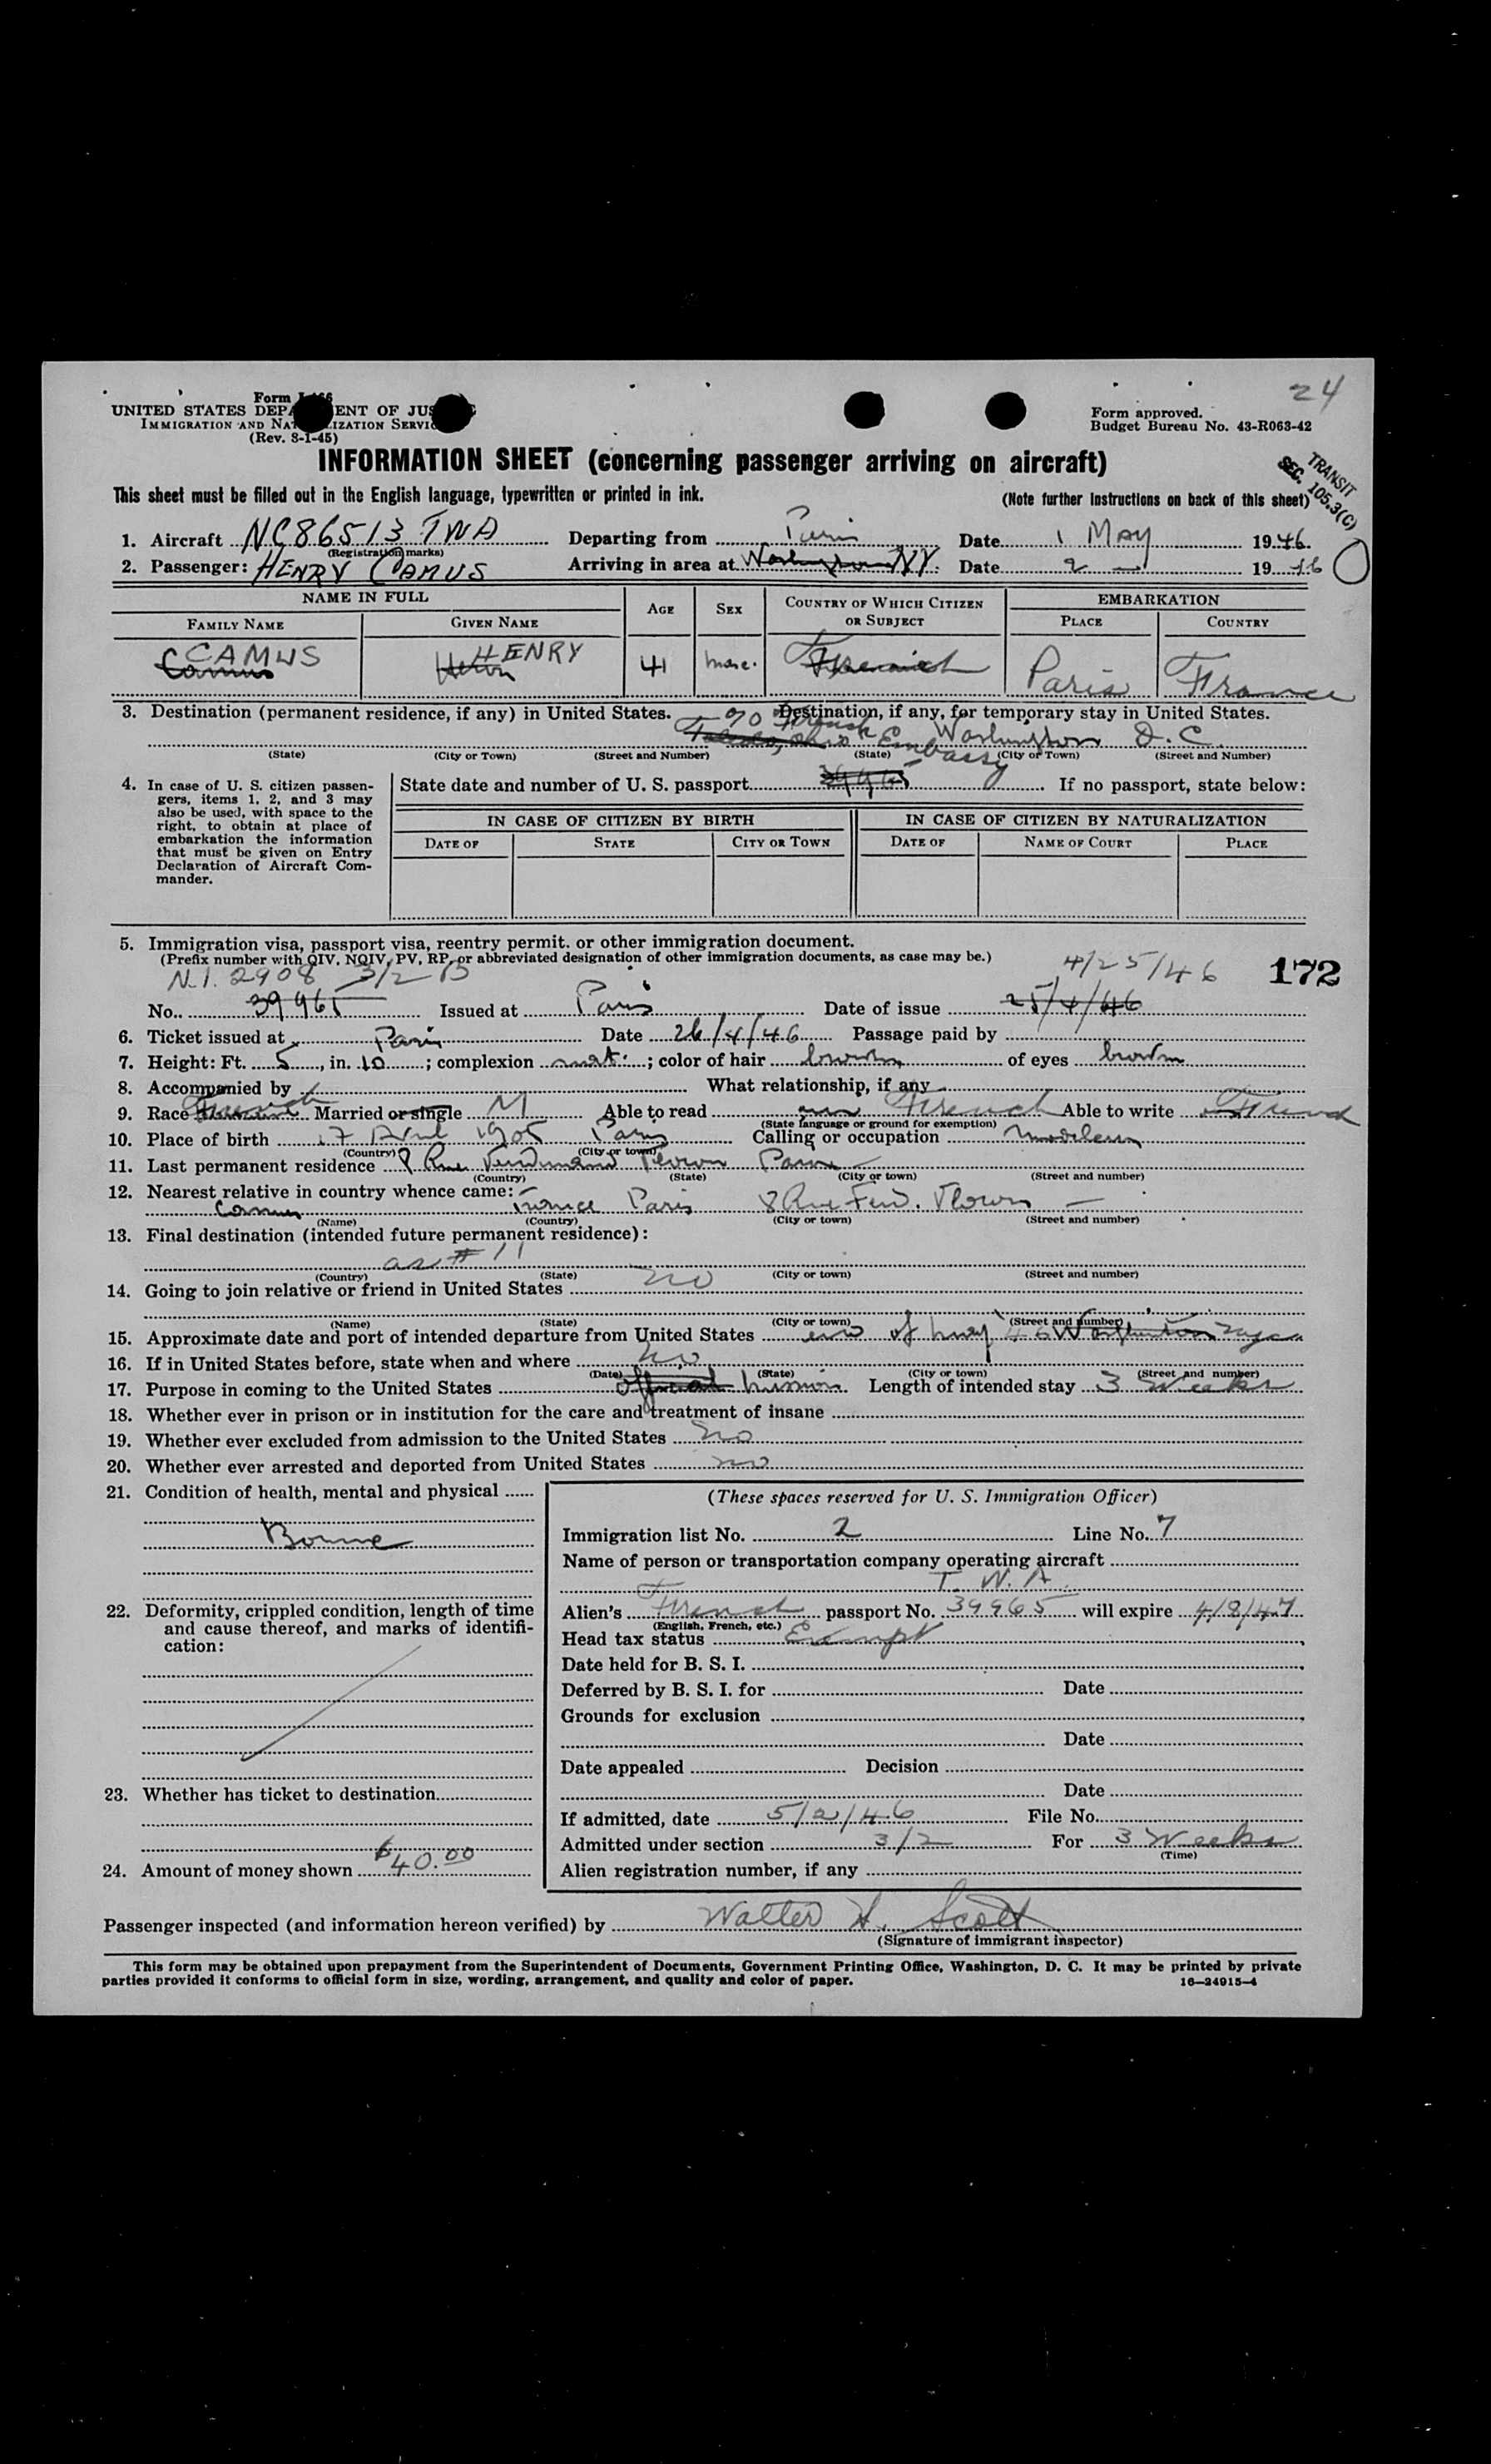 24
Form I-466
UNITED STATES DEPARTMENT OF JUSTICE
IMMIGRATION AND NATURALIZATION SERVICE
(Rev. 8-1-45)
Form approved.
Budget Bureau No. 43-R063-42
INFORMATION SHEET (concerning passenger arriving on aircraft)
TRANSIT
SEC. 105.3(C)
This sheet must be filled out in the English language, typewritten or printed in ink. (Note further instructions on back of this sheet)
1. Aircraft NC86513 TWA Departing from Paris Date 1 May 1946.
(Registration marks)
2. Passenger: HENRY CAMUS Arriving in area at Washington NY. Date 2 — 1946
NAME IN FULL AGE SEX COUNTRY OF WHICH CITIZEN OR SUBJECT EMBARKATION
FAMILY NAME GIVEN NAME PLACE COUNTRY
CAMUS HENRY 41 masc. French Paris France
Camus
3. Destination (permanent residence, if any) in United States. Destination, if any, for temporary stay in United States.
Toledo, Ohio % French Embassy Washington D.C.
(State) (City or Town) (Street and Number) (State) (City or Town) (Street and Number)
4. In case of U. S. citizen passengers, items 1, 2, and 3 may also be used, with space to the right, to obtain at place of embarkation the information that must be given on Entry Declaration of Aircraft Commander.
State date and number of U. S. passport 39965 If no passport, state below:
IN CASE OF CITIZEN BY BIRTH IN CASE OF CITIZEN BY NATURALIZATION
DATE OF STATE CITY OR TOWN DATE OF NAME OF COURT PLACE
5. Immigration visa, passport visa, reentry permit. or other immigration document.
(Prefix number with QIV, NQIV, PV, RP, or abbreviated designation of other immigration documents, as case may be.)
N.I. 2908 3/2 4/25/46 172
No. 39965 Issued at Paris Date of issue 25/4/46
6. Ticket issued at Paris Date 26/4/46 Passage paid by
7. Height: Ft. 5, in. 10; complexion mat; color of hair brown of eyes brown
8. Accompanied by What relationship, if any
9. Race French Married or single M Able to read French Able to write French
(State language or ground for exemption)
10. Place of birth 17 April 1905 Paris Calling or occupation
(Country) (City or town)
11. Last permanent residence 8 Rue Ferdinand Flocon Paris
(Country) (State) (City or town) (Street and number)
12. Nearest relative in country whence came:
Camus France Paris 8 Rue Ferd. Flocon —
(Name) (Country) (City or town) (Street and number)
13. Final destination (intended future permanent residence):
as # 11
(Country) (State) (City or town) (Street and number)
14. Going to join relative or friend in United States no
(Name) (State) (City or town) (Street and number)
15. Approximate date and port of intended departure from United States end of May 46 Washington
16. If in United States before, state when and where no
(Date) (State) (City or town) (Street and number)
17. Purpose in coming to the United States official mission Length of intended stay 3 weeks
18. Whether ever in prison or in institution for the care and treatment of insane
19. Whether ever excluded from admission to the United States no
20. Whether ever arrested and deported from United States no
21. Condition of health, mental and physical
Bonne
22. Deformity, crippled condition, length of time and cause thereof, and marks of identification:
23. Whether has ticket to destination
24. Amount of money shown $40.00
(These spaces reserved for U. S. Immigration Officer)
Immigration list No. 2 Line No. 7
Name of person or transportation company operating aircraft
T. W. A.
Alien's French passport No. 39965 will expire 4/8/47
(English, French, etc.)
Head tax status Exempt
Date held for B. S. I.
Deferred by B. S. I. for Date
Grounds for exclusion
Date
Date appealed Decision
Date
If admitted, date 5/2/46 File No.
Admitted under section 3/2 For 3 Weeks
(Time)
Alien registration number, if any
Passenger inspected (and information hereon verified) by Walter H. Scott
(Signature of immigrant inspector)
This form may be obtained upon prepayment from the Superintendent of Documents, Government Printing Office, Washington, D. C. It may be printed by private
parties provided it conforms to official form in size, wording, arrangement, and quality and color of paper. 16—24915-4